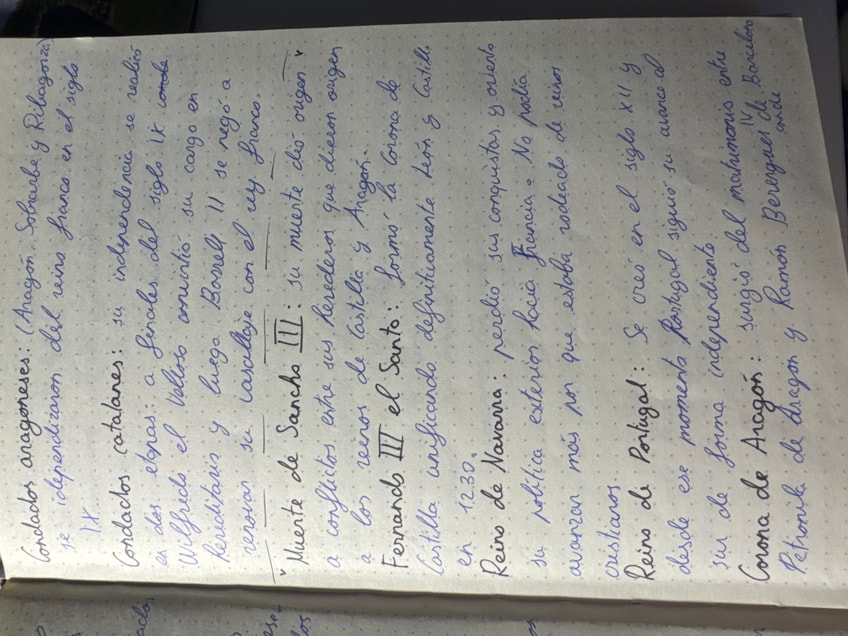 Condados aragoneses: (Aragón, Sobrarbe y Ribagorza)
se idependizaron del reino franco en el siglo
IX
Condados catalanes: su independencia se realizó
en dos etapas: a finales del siglo IX conde
Wilfredo el Velloso convirtió su cargo en
hereditario y luego Borrell II se negó a
renovar su vasallaje con el rey franco.
"Muerte de Sancho III: su muerte dió origen"
a conflictos entre sus herederos que dieron origen
a los reinos de Castilla y Aragón.
Fernando III el Santo: formó la Corona de
Castilla unificando definitivamente León y Castilla
en 1230.
Reino de Navarra: perdió sus conquistas y orientó
su política exterior hacia Francia. No podía
avanzar más por que estaba rodeado de reinos
cristianos
Reino de Portugal: Se creó en el siglo XII y
desde ese momento Portugal siguió su avance al
sur de forma independiente
Corona de Aragón: surgió del matrimonio entre
Petronila de Aragón y Ramón Berenguer IV conde de Barcelona
ados,